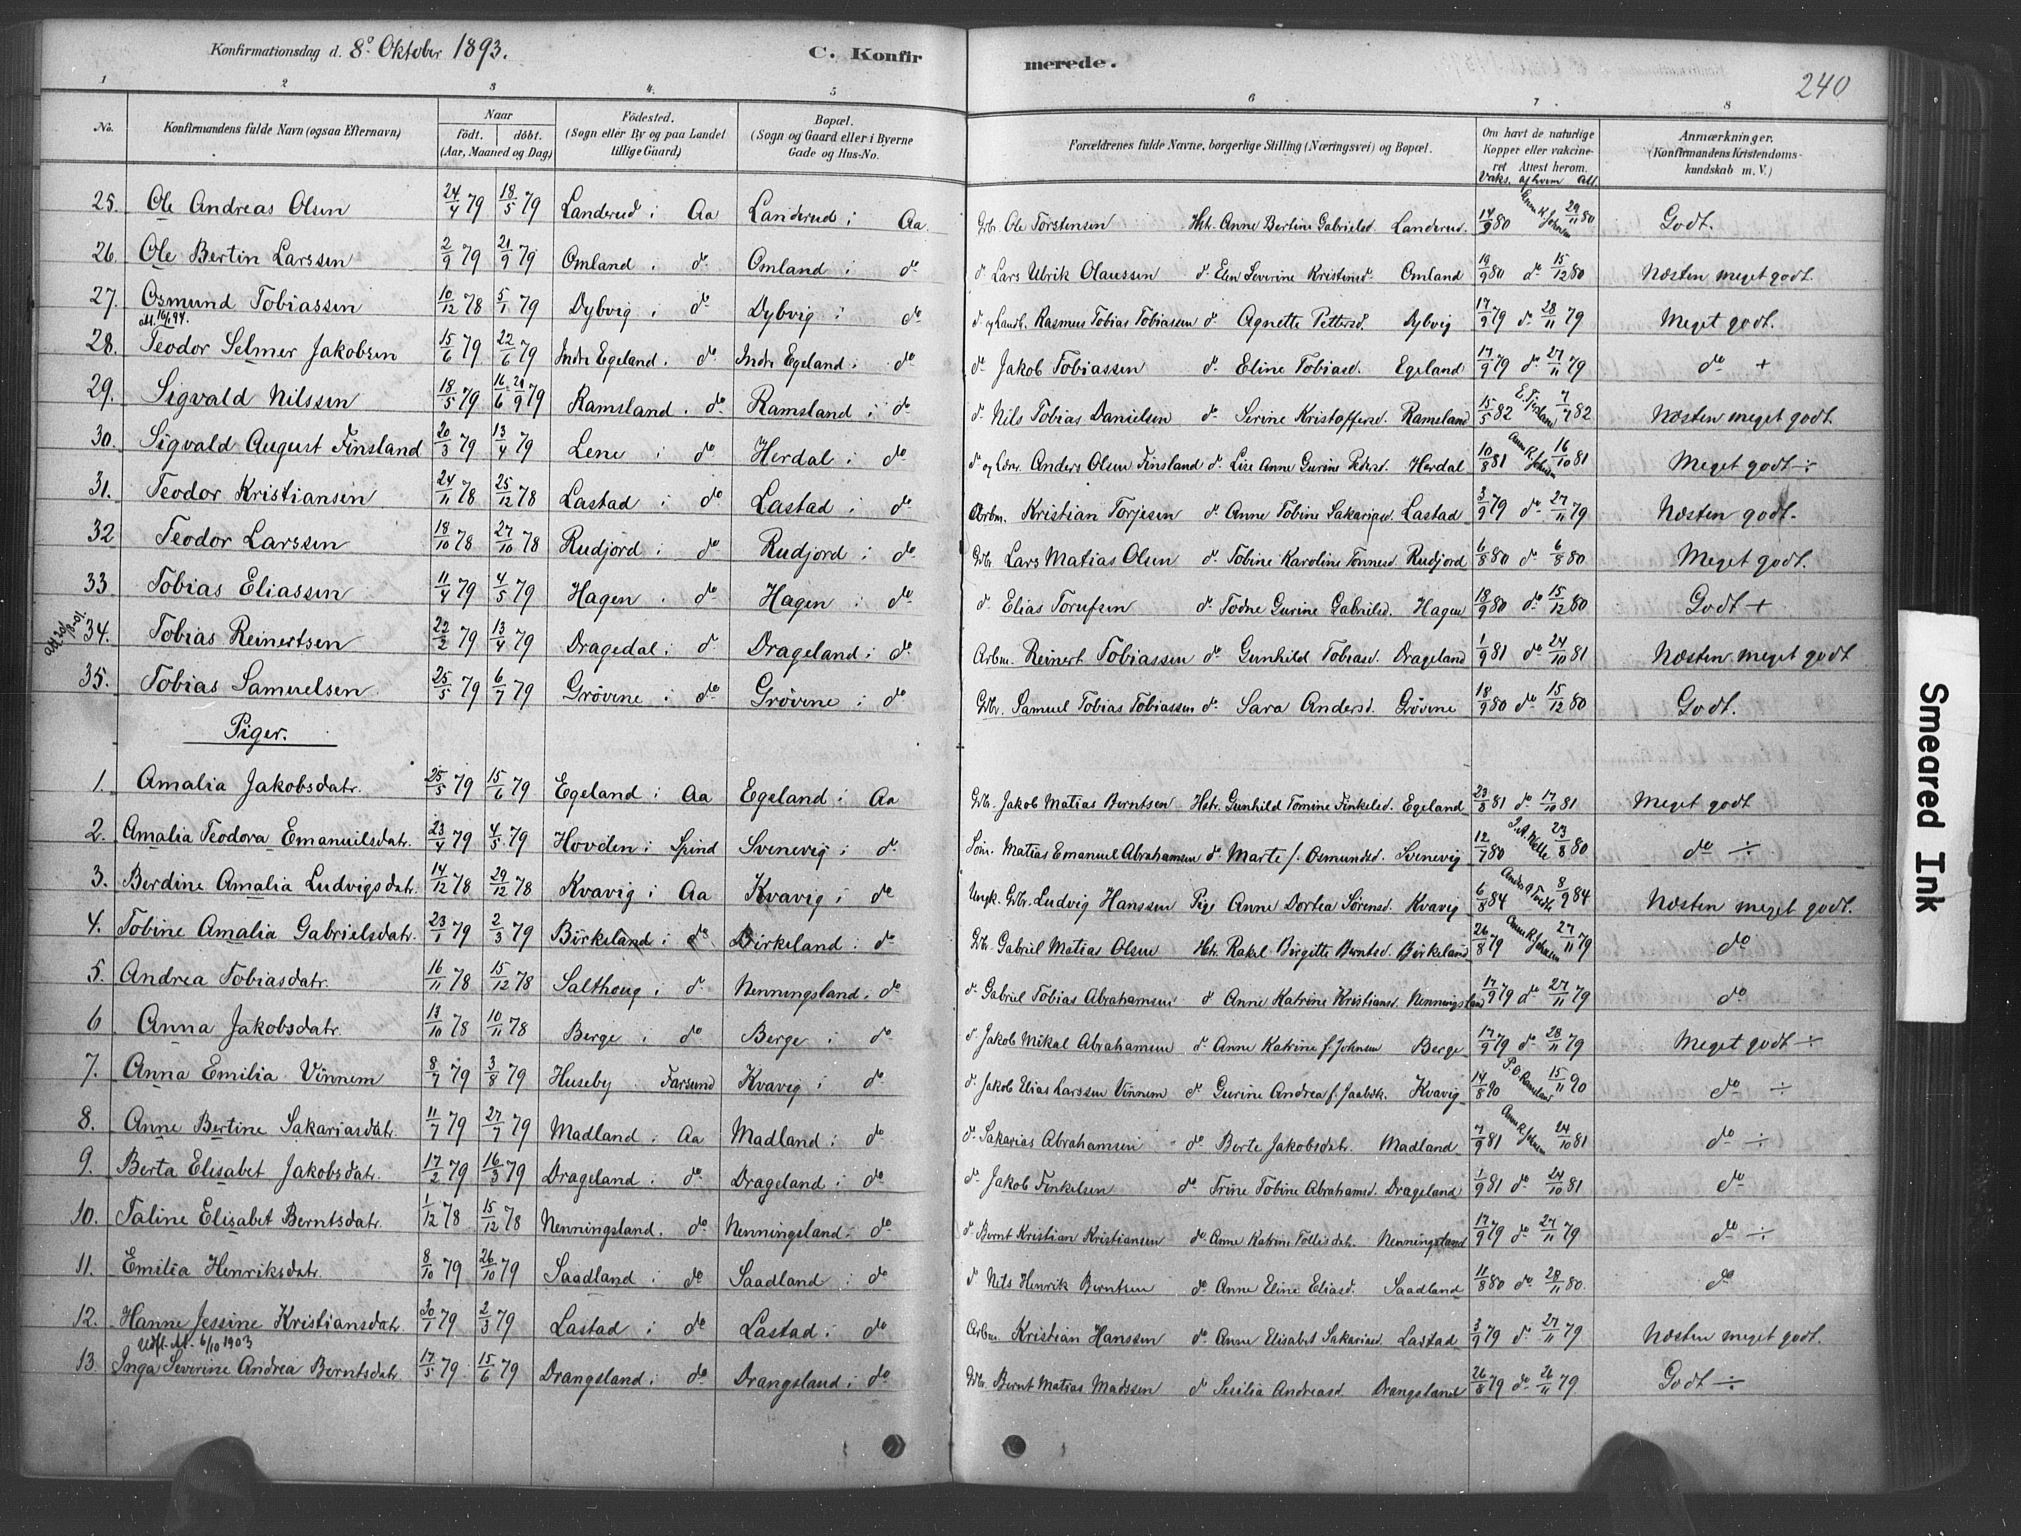 Konfirmationsdag d. 8º Oktober 1893. C. Konfir merede. 240
1 2 3 4. 5 6 7 8
No. Konfirmandens fulde Navn (ogsaa Efternavn) Naar født. døbt. (Aar, Maaned og Dag) Fødested. (Sogn eller By og paa Landet tillige Gaard) Bopæl. (Sogn og Gaard eller i Byerne Gade og Hus-No. Forældrenes fulde Navne, borgerlige Stilling (Næringsvei) og Bopæl. Om havt de naturlige Kopper eller vakcineret Attest herom. Anmærkninger. (Konfirmandens Kristendomskundskab m. V.)
Vaks. af hvem att.
25. Ole Andreas Olsen 24/4 79 18/5 79 Landerud i Aa Landerud i Aa Gbr. Ole Torstensen Hstr. Anne Bertine Gabrielsd. Landerud. 14/9 80 29/11 80 Godt.
26. Ole Bertin Larssen 2/9 79 21/9 79 Omland i do Omland i do do Lars Ulrik Olaussen do Elen Severine Kristensd. Omland 19/9 80 do 15/12 80 Næsten meget godt.
27. Osmund Tobiassen 10/12 78 5/1 79 Dybvig i do Dybvig i do do og Landh. Rasmus Tobias Tobiassen do Agnette Pettersd. Dybvig 17/9 79 do 28/11 79 Meget godt.
att. 16/1 94.
28. Teodor Selmer Jakobsen 15/6 79 22/6 79 Indre Egeland i do Indre Egeland i do do Jakob Tobiassen do Eline Tobiasd. Egeland 17/9 79 do 27/11 79 do +
29. Sigvald Nilssen 18/5 79 16/6 21/9 79 Ramsland i do Ramsland i do do Nils Tobias Danielsen do Serine Kristoffersd. Ramsland 15/5 82 7/7 82 Næsten meget godt.
30. Sigvald August Finsland 20/3 79 13/4 79 Lene i do Herdal i do do og Lær. Anders Olsen Finsland do Lise Anne Gurine Pedersd. Herdal 10/8 81 16/10 81 Meget godt ÷
31. Teodor Kristiansen 24/11 78 25/12 78 Lastad i do Lastad i do Arbm. Kristian Torjesen do Anne Tobine Sakariasd. Lastad 3/9 79 do 27/11 79 Næsten godt.
32 Teodor Larssen 18/10 78 27/10 78 Rudjord i do Rudjord i do Gbr. Lars Matias Olsen do Tobine Karoline Tønnesd. Rudjord 6/8 80 do 6/8 80 Meget godt.
33 Tobias Eliassen 11/4 79 4/5 79 Hagen i do Hagen i do do Elias Torufsen do Todne Gurine Gabrielsd. Hagen 18/9 80 do 15/12 80 Godt +
34. Tobias Reinertsen 22/2 79 13/4 79 Dragedal i do Drageland i do Arbm. Reinert Tobiassen do Gunhild Tobiasd. Drageland 1/9 81 do 24/10 81 Næsten meget godt
35. Tobias Samuelsen 25/5 79 6/7 79 Grøvine i do Grøvine i do Gbr. Samuel Tobias Tobiassen do Sara Andersd. Grøvine 18/9 80 do 15/12 80 Godt.
Piger.
1. Amalia Jakobsdatr. 25/5 79 15/6 79 Egeland i Aa Egeland i Aa Gbr. Jakob Matias Berntsen Hstr. Gunhild Tomine Finkelsd. Egeland 23/8 81 do 17/10 81 Meget godt
2. Amalia Teodora Emanuelsdatr. 23/4 79 4/5 79 Hovden i Spind Svenevig i do Søm. Matias Emanuel Abrahamsen do Marte f. Osmundsd. Svenevig 12/7 80 23/8 80 do ÷
3. Berdine Amalia Ludvigsdatr. 14/12 78 29/12 78 Kvavig i Aa Kvavig i do Ungk. Gbr. Ludvig Hanssen Pige Anne Dortea Sørensd. Kvavig 6/8 84 8/9 84 Næsten meget godt.
4. Tobine Amalia Gabrielsdatr. 23/1 79 2/3 79 Birkeland i do Birkeland i do Gbr. Gabriel Matias Olsen Hstr. Rakel Birgitte Berntsd. Birkeland 26/8 79 27/11 79 do
5. Andrea Tobiasdatr. 16/11 78 15/12 78 Salthoug i do Nenningsland i do do Gabriel Tobias Abrahamsen do Anne Katrine Kristiansd. Nenningsland 17/9 79 do 27/11 79 do
6 Anna Jakobsdatr. 13/10 78 10/11 78 Berge i do Berge i do do Jakob Mikal Abrahamsen do Anne Katrine f. Johnsen Berge 17/9 79 do 28/11 79 Meget godt ÷
7. Anna Emilia Vinnem 8/7 79 3/8 79 Huseby Farsund Kvavig i do do Jakob Elias Larssen Vinnem do Gurine Andrea f. Jaabæk. Kvavig 14/8 90 15/11 90 do ÷
8. Anne Bertine Sakariasdatr. 11/7 79 27/7 79 Madland i Aa Madland i do do Sakarias Abrahamsen do Berte Jakobsdatr. Madland 7/9 81 24/10 81 do ÷
9. Berta Elisabet Jakobsdatr. 17/2 79 16/3 79 Drageland i do Drageland i do do Jakob Finkelsen do Trine Tobine Abrahamsd. Drageland 1/9 81 do 24/10 81 do
10. Taline Elisabet Berntsdatr. 1/12 78 15/12 78 Nenningsland i do Nenningsland i do do Bernt Kristian Kristiansen do Anne Katrine Tollisdatr. Nenningsland 17/9 79 do 27/11 79 do ÷
11. Emilia Henriksdatr. 8/10 79 26/10 79 Saadland i do Saadland i do do Nils Henrik Berntsen do Anne Eline Eliasd. Saadland 11/8 80 do 28/11 80. do
12. Hanne Jessine Kristiansdatr. 30/1 79 2/3 79 Lastad i do Lastad i do Arbm. Kristian Hanssen do Anne Elisabet Sakariasd Lastad 3/9 79 do 27/11 79 Næsten meget godt.
6/10 1903
13. Inga Severine Andrea Berntsdatr. 17/5 79. 15/6 79 Drangsland i do Drangsland i do Gbr. Bernt Matias Madssen do Sesilia Andreasd Drangsland 26/8 79 do 26/11 79 Godt ÷
Smeared Ink